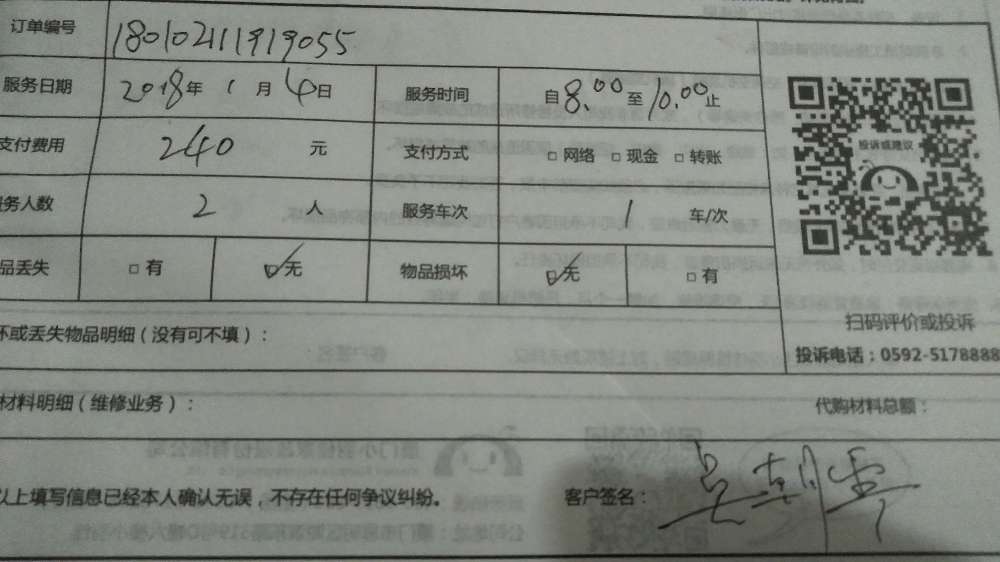 订单编号 18010211919055
服务日期 2018年 1月 4日 服务时间 自8.00至10.00止
支付费用 240 元 支付方式 □ 网络 □ 现金 □ 转账
务人数 2 人 服务车次 1 车/次
品丢失 □ 有 ☑ 无 物品损坏 ☑ 无 □ 有
投诉或建议
扫码评价或投诉
投诉电话：0592-5178888
坏或丢失物品明细（没有可不填）：
材料明细（维修业务）： 代购材料总额：
以上填写信息已经本人确认无误，不存在任何争议纠纷。 客户签名：